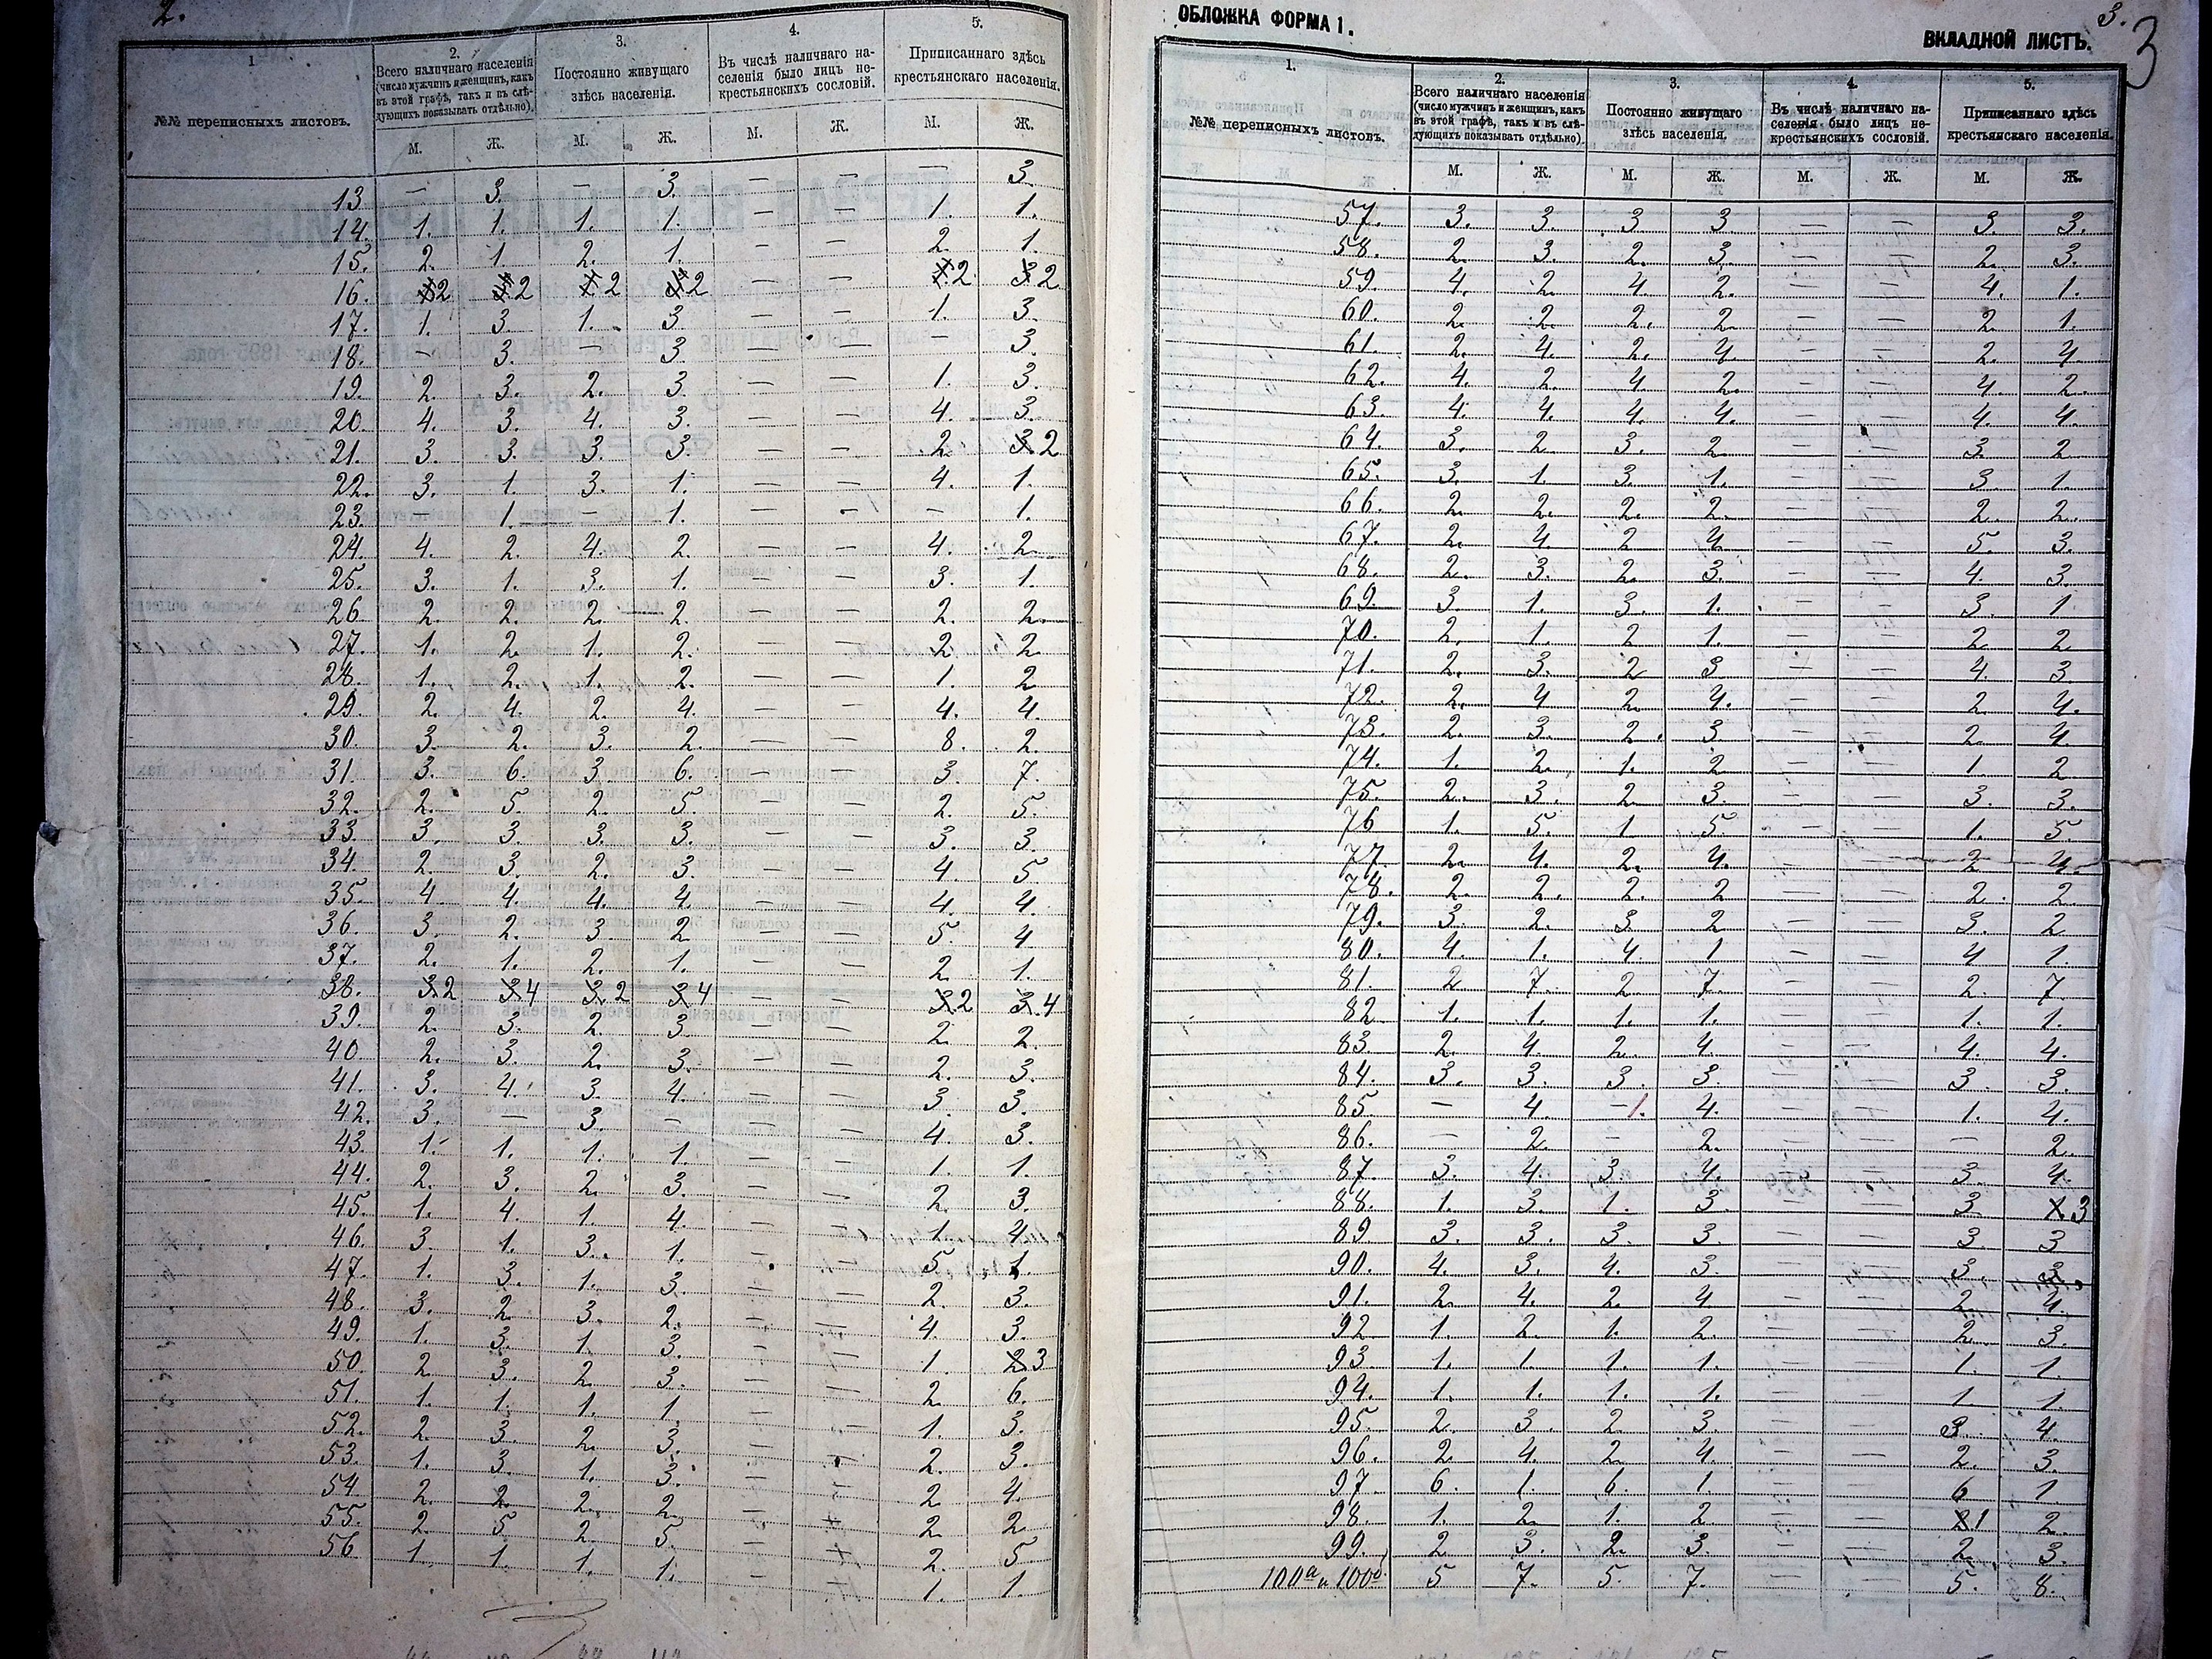 2.
1. 2. 3. 4. 5.
№№ переписныхъ листовъ. Всего наличнаго населенія (число мужчинъ и женщинъ, какъ въ этой графѣ, такъ и въ слѣдующихъ показывать отдѣльно). Постоянно живущаго здѣсь населенія. Въ числѣ наличнаго населенія было лицъ некрестьянскихъ сословій. Приписаннаго здѣсь крестьянскаго населенія.
М. Ж. М. Ж. М. Ж. М. Ж.
13 — 3. — 3. — — — 3.
14. 1. 1. 1. 1. — — 1. 1.
15. 2. 1. 2. 1. — — 2. 1.
16. 2 2 2 2 — — 2 2
17. 1. 3. 1. 3 — — 1. 3.
18. — 3. — 3 — — — 3.
19. 2. 3. 2. 3. — — 1. 3.
20. 4. 3. 4. 3. — — 4. 3.
21. 3. 3. 3. 3. — — 2. 2
22. 3. 1. 3. 1. — — 4. 1.
23. — 1. — 1. — — — 1.
24. 4. 2. 4. 2. — — 4. 2.
25. 3. 1. 3. 1. — — 3. 1.
26 2. 2. 2. 2. — — 2. 2.
27. 1. 2. 1. 2. — — 2. 2.
28. 1. 2. 1. 2. — — 1. 2
29. 2. 4. 2. 4. — — 4. 4.
30. 3. 2. 3. 2. — — 8. 2.
31. 3. 6. 3. 6. — — 3 7.
32. 2. 5. 2. 5. — — 2. 5.
33. 3. 3. 3. 3. — — 3. 3.
34. 2. 3. 2. 3. — — 4. 5
35. 4. 4. 4. 4. — — 4. 4.
36. 3. 2. 3. 2. — — 5. 4
37. 2. 1. 2. 1. — — 2. 1.
38. 2 4 2 4 — — 2 4
39. 2. 3. 2. 3. — — 2. 2.
40 2. 3. 2. 3. — — 2. 3.
41. 3. 4. 3. 4. — — 3. 3.
42. 3. — 3. — — — 4. 3.
43. 1. 1. 1. 1. — — 1. 1.
44. 2. 3. 2. 3. — — 2. 3.
45. 1. 4. 1. 4. — — 1. 4.
46. 3. 1. 3. 1. — — 5. 1.
47. 1. 3. 1. 3. — — 2. 3.
48. 3. 2. 3. 2. — — 4. 3.
49. 1. 3. 1. 3. — — 1. 3
50. 2. 3. 2. 3. — — 2. 6.
51. 1. 1. 1. 1. — — 1. 3.
52. 2. 3. 2. 3. — — 2. 3.
53. 1. 3. 1. 3. — — 2. 4.
54 2. 2. 2. 2. — — 2. 2.
55. 2. 5. 2. 5. — — 2. 5
56 1. 1. 1. 1. — — 1. 1.
ОБЛОЖКА ФОРМА 1.
ВКЛАДНОЙ ЛИСТЪ.
3.
3
1. 2. 3. 4. 5.
№№ переписныхъ листовъ. Всего наличнаго населенія (число мужчинъ и женщинъ, какъ въ этой графѣ, такъ и въ слѣдующихъ показывать отдѣльно). Постоянно живущаго здѣсь населенія. Въ числѣ наличнаго населенія было лицъ некрестьянскихъ сословій. Приписаннаго здѣсь крестьянскаго населенія.
М. Ж. М. Ж. М. Ж. М. Ж.
57. 3. 3. 3 3 — — 3. 3.
58. 2. 3. 2. 3. — — 2. 3.
59. 4. 2. 4. 2. — — 4. 1.
60. 2. 2. 2. 2. — — 2. 1.
61. 2. 4. 2. 4. — — 2. 4
62. 4. 2. 4 2. — — 4. 2.
63. 4. 4. 4. 4. — — 4. 4.
64. 3. 2 3. 2. — — 3. 2
65. 3. 1. 3. 1. — — 3 1.
66. 2. 2. 2. 2. — — 2. 2.
67. 2. 4. 2 4. — — 5. 3.
68. 2. 3. 2. 3. — — 4. 3.
69. 3. 1. 3. 1. — — 3. 1
70. 2. 1. 2 1. — — 2. 2
71. 2. 3. 2 3 — — 4. 3.
72. 2. 4 2. 4. — — 2. 4.
73. 2. 3. 2. 3. — — 2. 4.
74. 1. 2. 1. 2 — — 1. 2
75. 2. 3. 2. 3. — — 3. 3.
76 1. 5. 1 5. — — 1. 5.
77. 2. 4. 2. 4. — — 2 4.
78. 2. 2. 2. 2 — — 2. 2.
79. 3. 2. 3 2 — — 3. 2
80. 4. 1. 4. 1 — — 4 1.
81. 2 7. 2. 7. — — 2. 7.
82 1. 1. 1. 1. — — 1. 1.
83. 2. 4. 2. 4. — — 4. 4.
84. 3. 3. 3. 3. — — 3. 3.
85 — 4. —1. 4. — — 1. 4.
86. — 2. — 2. — — — 2.
87. 3. 4. 3. 4. — — 3. 4.
88. 1. 3. 1. 3. — — 3. 3
89 3. 3. 3. 3. — — 3. 3
90. 4. 3. 4. 3. — — 3. 3.
91. 2. 4. 2. 4 — — 2. 4.
92 1. 2. 1. 2. — — 2. 3.
93. 1. 1. 1. 1. — — 1. 1.
94. 1. 1. 1. 1. — — 1 1.
95. 2. 3. 2 3. — — 3. 4.
96. 2. 4. 2 4. — — 2. 3.
97 6. 1. 6. 1. — — 6 1
98. 1. 2. 1. 2. — — 1 2.
99. 2. 3. 2. 3. — — 2. 3.
100а и 100б 5 7. 5. 7. — — 5. 8.